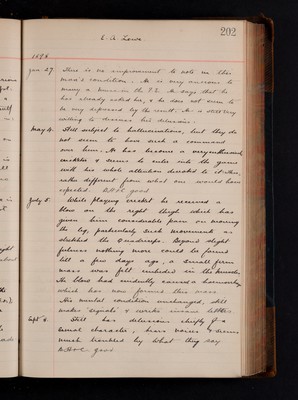 202
E. A. Lowe
1896
Jan 27. There is no improvement to note in this
man's condition. He is very anxious to
marry a nurse in the F.I. He says that he
has already asked her, & he does not seem to
be any depressed by the result. He is still very
willing to discuss his delusions.
May 4. Still subject to hallucinations, but they do
not seem to have such a command
over him. He has become a very enthusiastic
cricketer & seems to enter into the game
with his whole attention devoted to it – this,
rather different from what one would have
expected. B.H. good
July 5. While playing cricket he received a
blow on the right thigh which has
given him considerable pain on moving
the leg, particularly such movement as
stretched the Quadriceps. Beyond slight
fulness nothing more could be found
till a few days ago; a small firm
mass was felt imbeded in the muscles,
the blow had evidently caused a haemorrhage
which has now formed this mass
His mental condition unchanged, still
makes signals & writes insane letters
Sept 6. Still has delusions chiefly of a
sexual character, hears voices & seems
much troubled by what they say
good